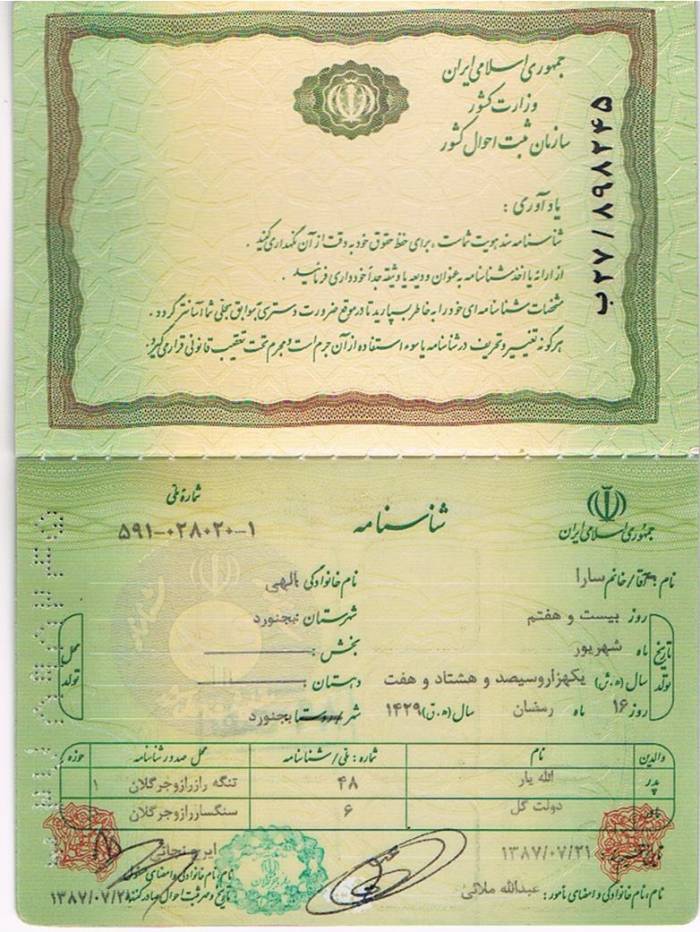 جمهوری اسلامی ایران
وزارت کشور
سازمان ثبت احوال کشور
ب۲۷/۸۹۸۲۴۵
یادآوری :
شناسنامه سند هویت شماست ، برای حفظ حقوق خود به دقت از آن نگهداری کنید .
از ارائه یا اخذ شناسنامه به عنوان ودیعه یا وثیقه جداً خودداری فرمائید .
مشخصات شناسنامه ای خود را به خاطر بسپارید تا در موقع ضرورت دسترسی به سوابق سجلی شما آسانتر گردد .
هرگونه تغییر و تحریف در شناسنامه یا سوء استفاده از آن جرم است و مجرم تحت تعقیب قانونی قرار می گیرد .
شماره ملی
۵۹۱-۰۲۸۰۲۰-۱
شناسنامه
جمهوری اسلامی ایران
نام : آقا/خانم سارا
نام خانوادگی : الهی
تاریخ تولد
روز بیست و هفتم
ماه شهریور
سال (ه.ش) یکهزاروسیصد و هشتاد و هفت
روز ۱۶ ماه رمضان سال (ه.ق) ۱۴۲۹
محل تولد
شهرستان : بجنورد
بخش :
دهستان :
شهر/روستا : بجنورد
والدین نام شماره : ملی/شناسنامه محل صدور شناسنامه حوزه
پدر الله یار ۴۸ تنگه رازرازوجرگلان ۱
مادر دولت گل ۶ سنگساررازوجرگلان
تاریخ تنظیم : ۱۳۸۷/۰۷/۲۱
نام ، نام خانوادگی و امضای مأمور : عبدالله ملائی
ایرج نجاتی
نام ، نام خانوادگی و امضای
تاریخ و مهر ثبت احوال صادرکننده ۱۳۸۷/۰۷/۲۱